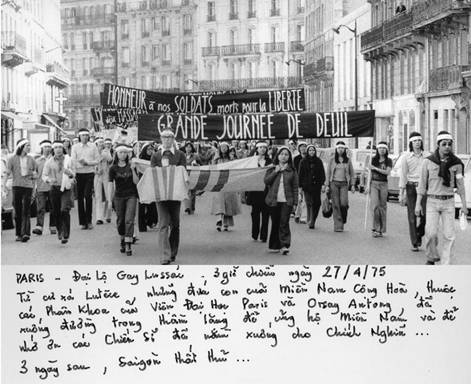 HONNEUR à nos SOLDATS morts pour la LIBERTÉ
GRANDE JOURNEE DE DEUIL
PARIS - Đại Lộ Gay Lussac . 3 giờ chiều ngày 27/4/75
Từ cư xá Lutèce, những đứa con cuối Miền Nam Cộng Hoà, thuộc
các Phân Khoa của Viện Đại Học Paris và Orsay Antony đã
xuống đường trong thầm lặng để ủng hộ Miền Nam và để
nhớ ơn các Chiến Sĩ đã nằm xuống cho Chính Nghĩa ...
3 ngày sau, Saigon thất thủ ...